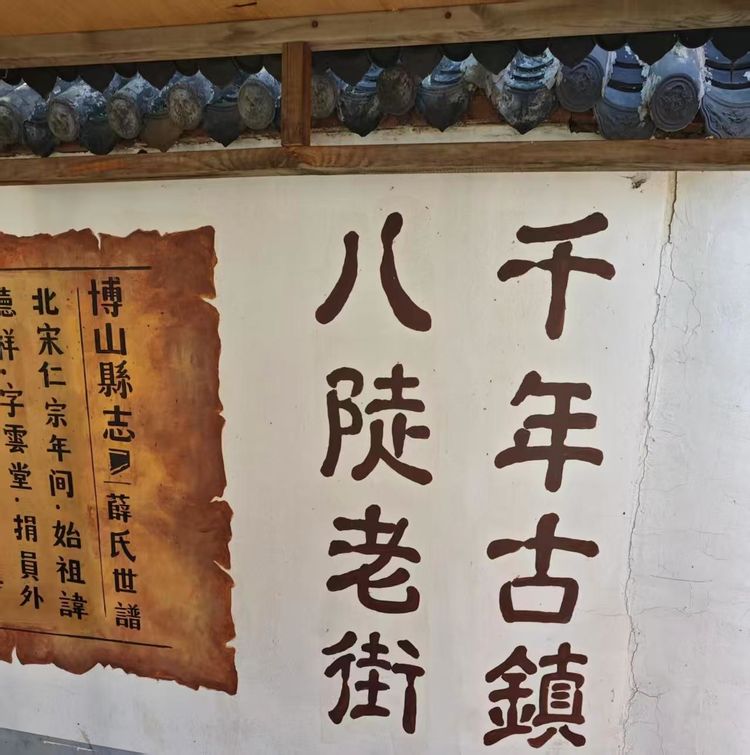 千年古鎮
八陡老街
博山縣志
薛氏世譜
北宋仁宗年间·始祖諱
德祥·字雲堂·捐員外